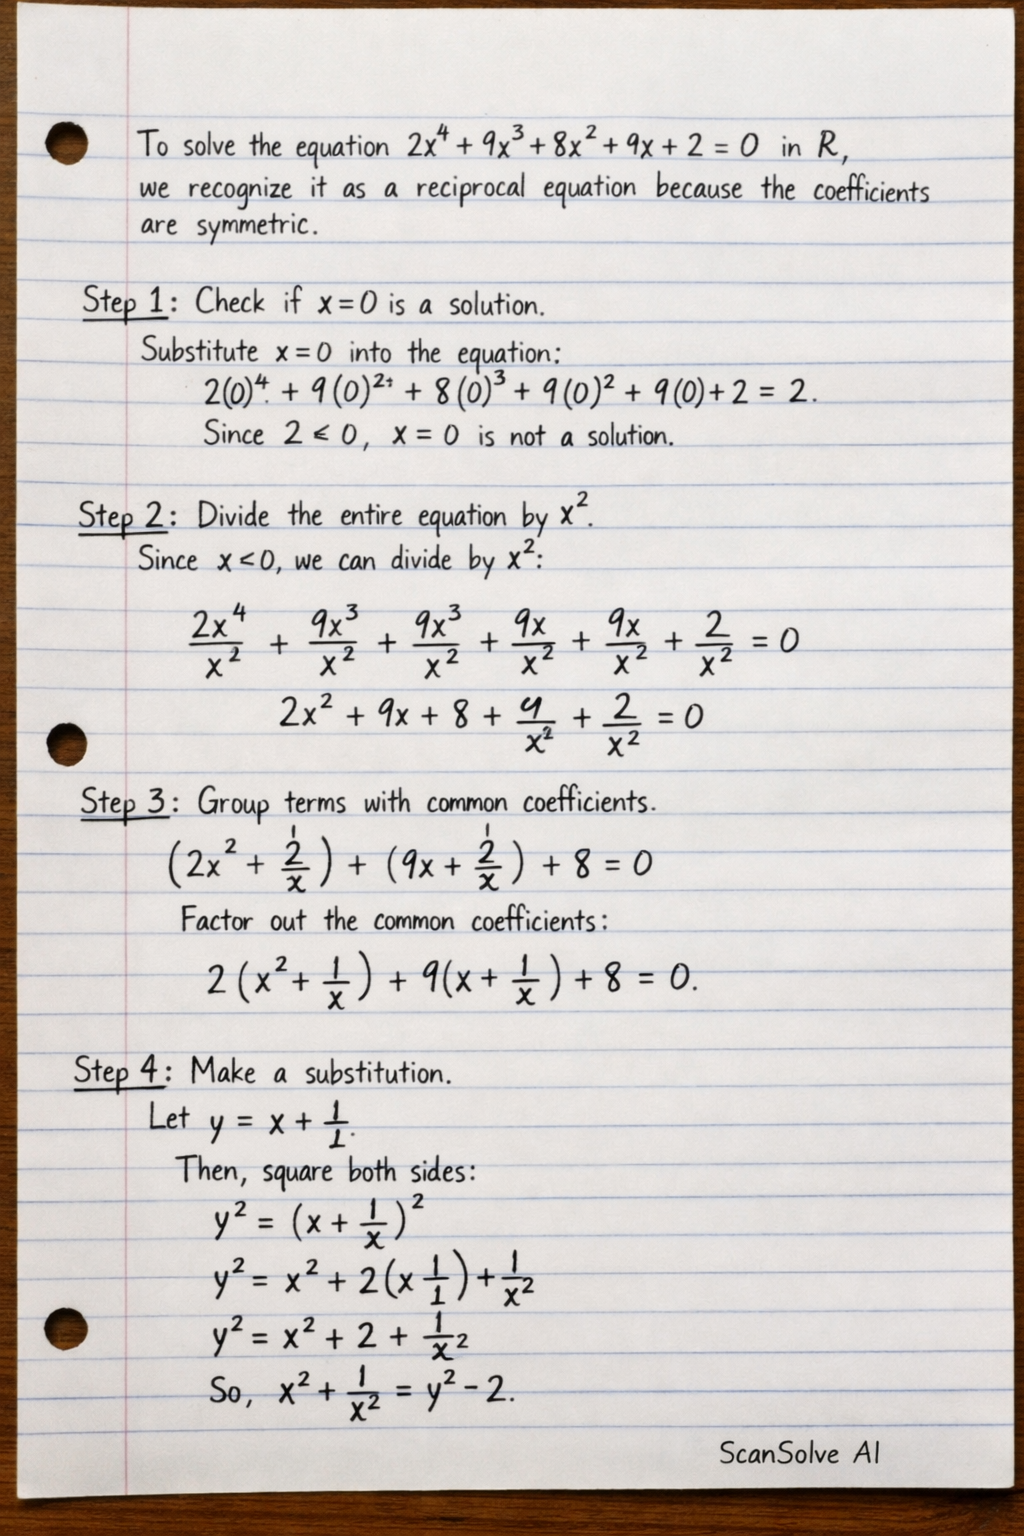 To solve the equation 2x⁴ + 9x³ + 8x² + 9x + 2 = 0 in R,
we recognize it as a reciprocal equation because the coefficients
are symmetric.
Step 1: Check if x = 0 is a solution.
Substitute x = 0 into the equation:
2(0)⁴. + 9(0)²⁺ + 8(0)³ + 9(0)² + 9(0) + 2 = 2.
Since 2 < 0, x = 0 is not a solution.
Step 2: Divide the entire equation by x².
Since x < 0, we can divide by x²:
2x⁴/x² + 9x³/x² + 9x³/x² + 9x/x² + 9x/x² + 2/x² = 0
2x² + 9x + 8 + 9/x² + 2/x² = 0
Step 3: Group terms with common coefficients.
(2x² + 2/x) + (9x + 2/x) + 8 = 0
Factor out the common coefficients:
2(x² + 1/x) + 9(x + 1/x) + 8 = 0.
Step 4: Make a substitution.
Let y = x + 1/1.
Then, square both sides:
y² = (x + 1/x)²
y² = x² + 2(x 1/1) + 1/x²
y² = x² + 2 + 1/x²
So, x² + 1/x² = y² - 2.
ScanSolve AI